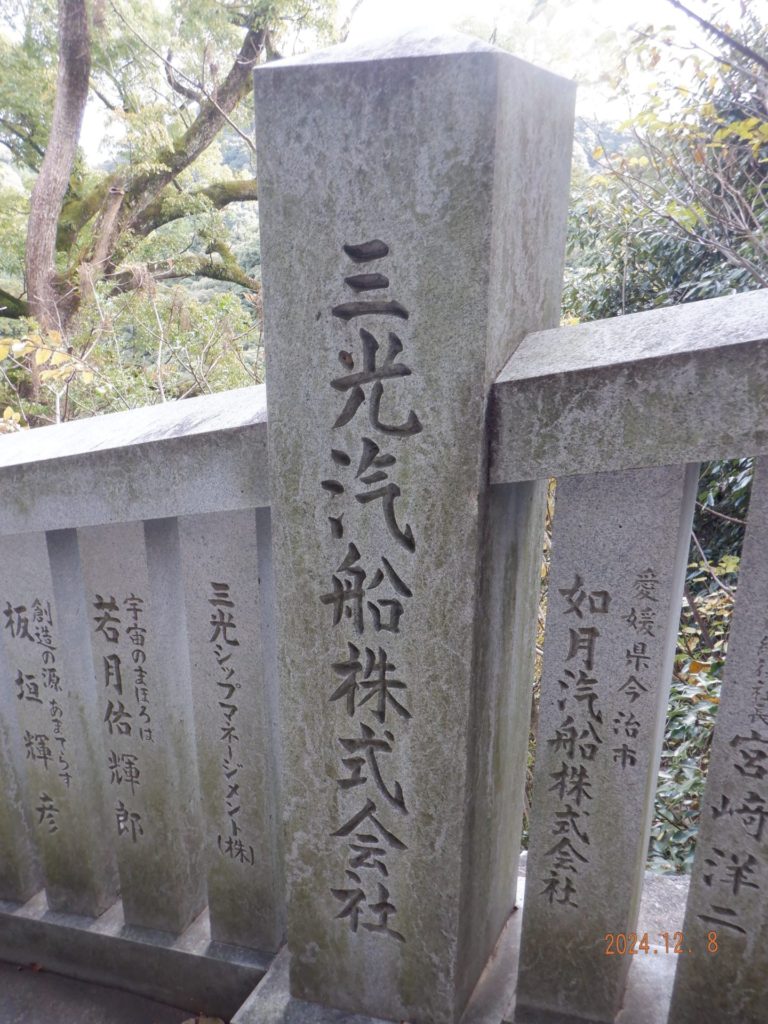 三光汽船株式会社
愛媛県今治市
如月汽船株式会社
宮崎洋二
三光シップマネージメント(株)
宇宙のまほろは
若月佑輝郎
創造の源 あまてらす
板垣輝彦
2024.12. 8